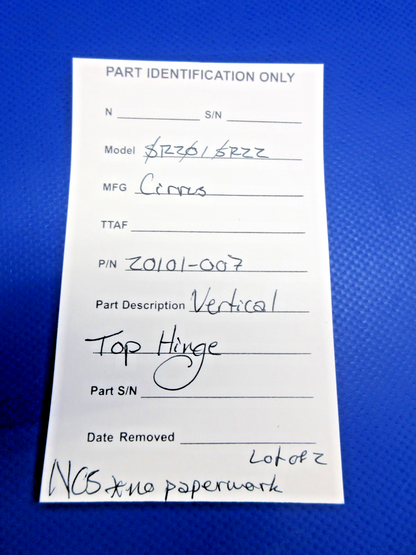 PART IDENTIFICATION ONLY
N S/N
Model SR20/SR22
MFG Cirrus
TTAF
P/N 20101-007
Part Description Vertical
Top Hinge
Part S/N
Date Removed
Lot of 2
NOS *no paperwork